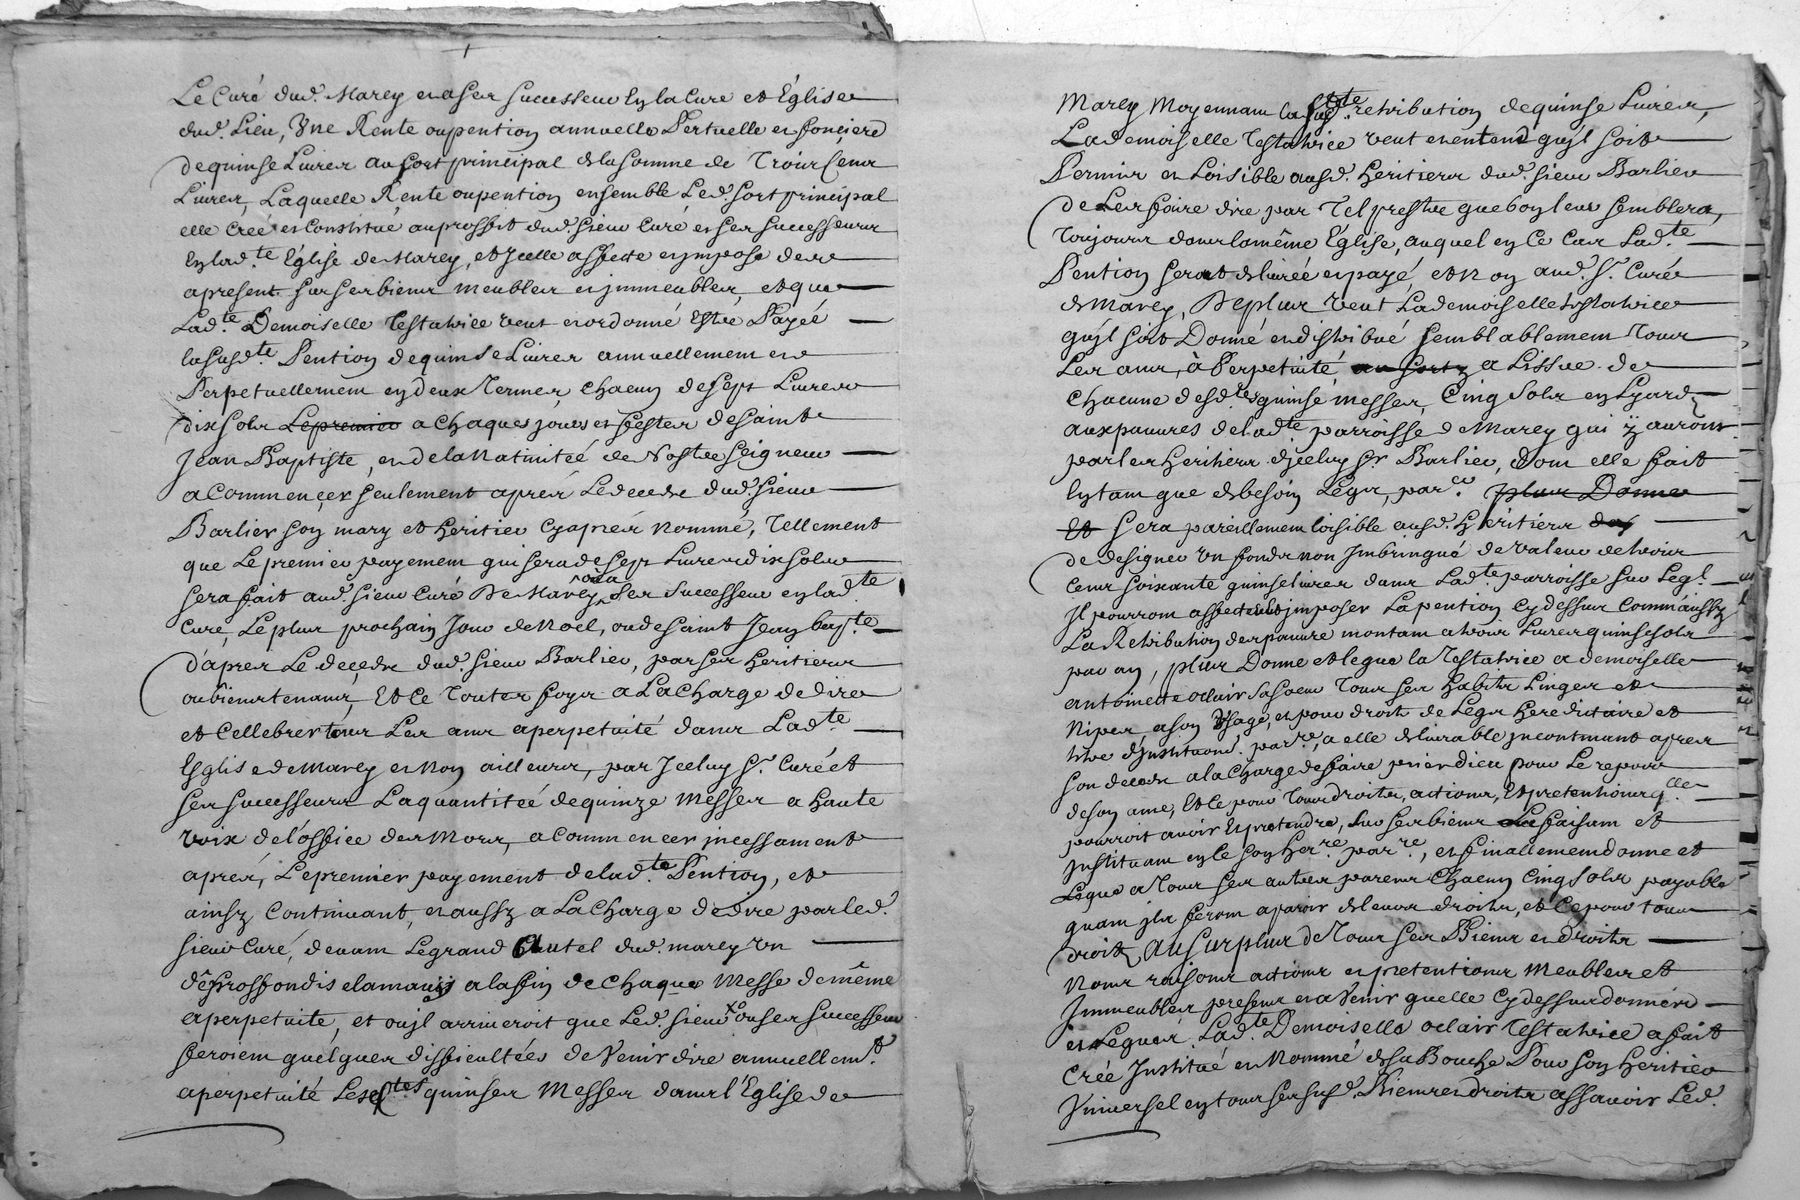 Le Curé dud. Marey et a ses successeur en la Cure et Église
dud. Lieu, Une Rente ou pention annuelle Pertuelle et fonciere
de quinse Livres au sort principal de la somme de Trois Cens
Livres, Laquelle Rente ou pention ensemble Led. sort principal
elle Créé et Constitué au proffit dud. sieur Curé et ses successeurs
en lad.te Église de Marey, et Icelle affecte et impose des
apresent sur ses biens meubles et immeubles, et que
Lad.te Demoiselle Testatrice veut et ordonné Estre Payéé
la susd.te Pention de quinse Livres annuellement et
Perpetuellement en deux Termes chacun de sept Livres
dix sols Le premier a chaques jours et festes de saint
Jean Baptiste, et de la Natinitéé de Nostre seigneur
a Commencer seulement aprés Le decedz dud. sieur
Barlier son mary et heritier cyaprés nommé, Tellement
que Le premier payement qui sera de sept Livres dix sols
sera fait aud. sieur Curé De Marey ou a Ses Successeur en lad.te
Cure, Le plus prochain Jour de Noel, ou de saint Jean bapt.te
d'apres Le decedz dud. sieur Barlier, par ses heritiers
ou bientenans, Et Ce Toutes foys a La Charge de dire
et Cellebrer tous Les ans a perpetuité dans Lad.te
Esglise de Marey et Non ailleurs, par Jceluy Sr. Curé et
ses successeurs La quantitéé de quinze Messes a haute
voix de l'office des Mors, a Commencer incessament
aprés, Le premier payement de lad.te Pention, et
ainsy Continuant, et aussy a La Charge de dire par led.
sieur Curé, devant Le grand Autel dud. marey un
deproffondis a la fin de Chaque Messe de même
a perpetuité, et ou il arriveroit que Led. sieur ou ses successeur
feroient quelques difficultées de Venir dire annuellem.t
a perpetuité Lesd.tes quinses Messes dans l'Eglise de
Marey Moyennant la susd.te retribution de quinse Livres,
La demoiselle Testatrice veut et entend qu'jl soit
Permis et Loisible ausd. Heritiers dud. sieur Barlier
de Les faire dire par Tel prestre que bon leur semblera,
Toujours dans la même Église, auquel en Ce Cas Lad.te
Pention serat delivréé et payé, et Non aud. Sr. Curé
de Marey, De plus Veut La demoiselle testatrice
qu'jl soit Donné et distribué semblablement Tous
Les ans, à Perpetuité au sort a L'issue de
chacune desd.tes quinse messes, Cinq Sols en Lyard
aux pauvres de lad.te parroisse de Marey qui y auront
par les Heritiers d'jceluy Sr Barlier, dont elle fait
en tant que de besoin Legs, par.ce plus Donne
Et sera pareillement loisible ausd. Heritiers
de designer un fonds non Imbringué de Valeur de trois
Cens soixante quinse livres dans Lad.te parroisse sur Leql.
Jl pourront affecter et imposer La pention Cy dessus Comm'aussy
La Retribution des pauvre montant a trois Livres quinse sols
par an, plus Donne et legue la Testatrice a demoiselle
antoinette oclair sa soeur Tous ses habits Linges et
Nipes a son Usage, et pour droit de Legs Hereditaire et
titre d'Institutiond. par.re, a elle delivrable incontinant apres
son decedz a la Charge de faire prier dieu pour Le repos
de son ame, Et Ce pour Tous droits, actions, Et pretentions qlle
pourroit avoir Et pretendre, sur ses biens La faisant et
Instituant en Ce son Her.re par.re, et finallement donne et
Legue a Tous ses autres parens Chacun Cinq Sols payable
quant jls feront aparoir de leurs droits, et Ce pour tous
droits, Au Surplus de Tous ses Biens et droits
Noms raisons actions et pretentions Meubles et
Immeubles presens et a Venir quelle Cy dessus donnés
et Legués. Lad.te Demoiselle oclair Testatrice a fait
Créé Institué et Nommé de sa Bouche Pour son Heritier
Vniversel en tous ses susd. Biens et droits assavoir Led.